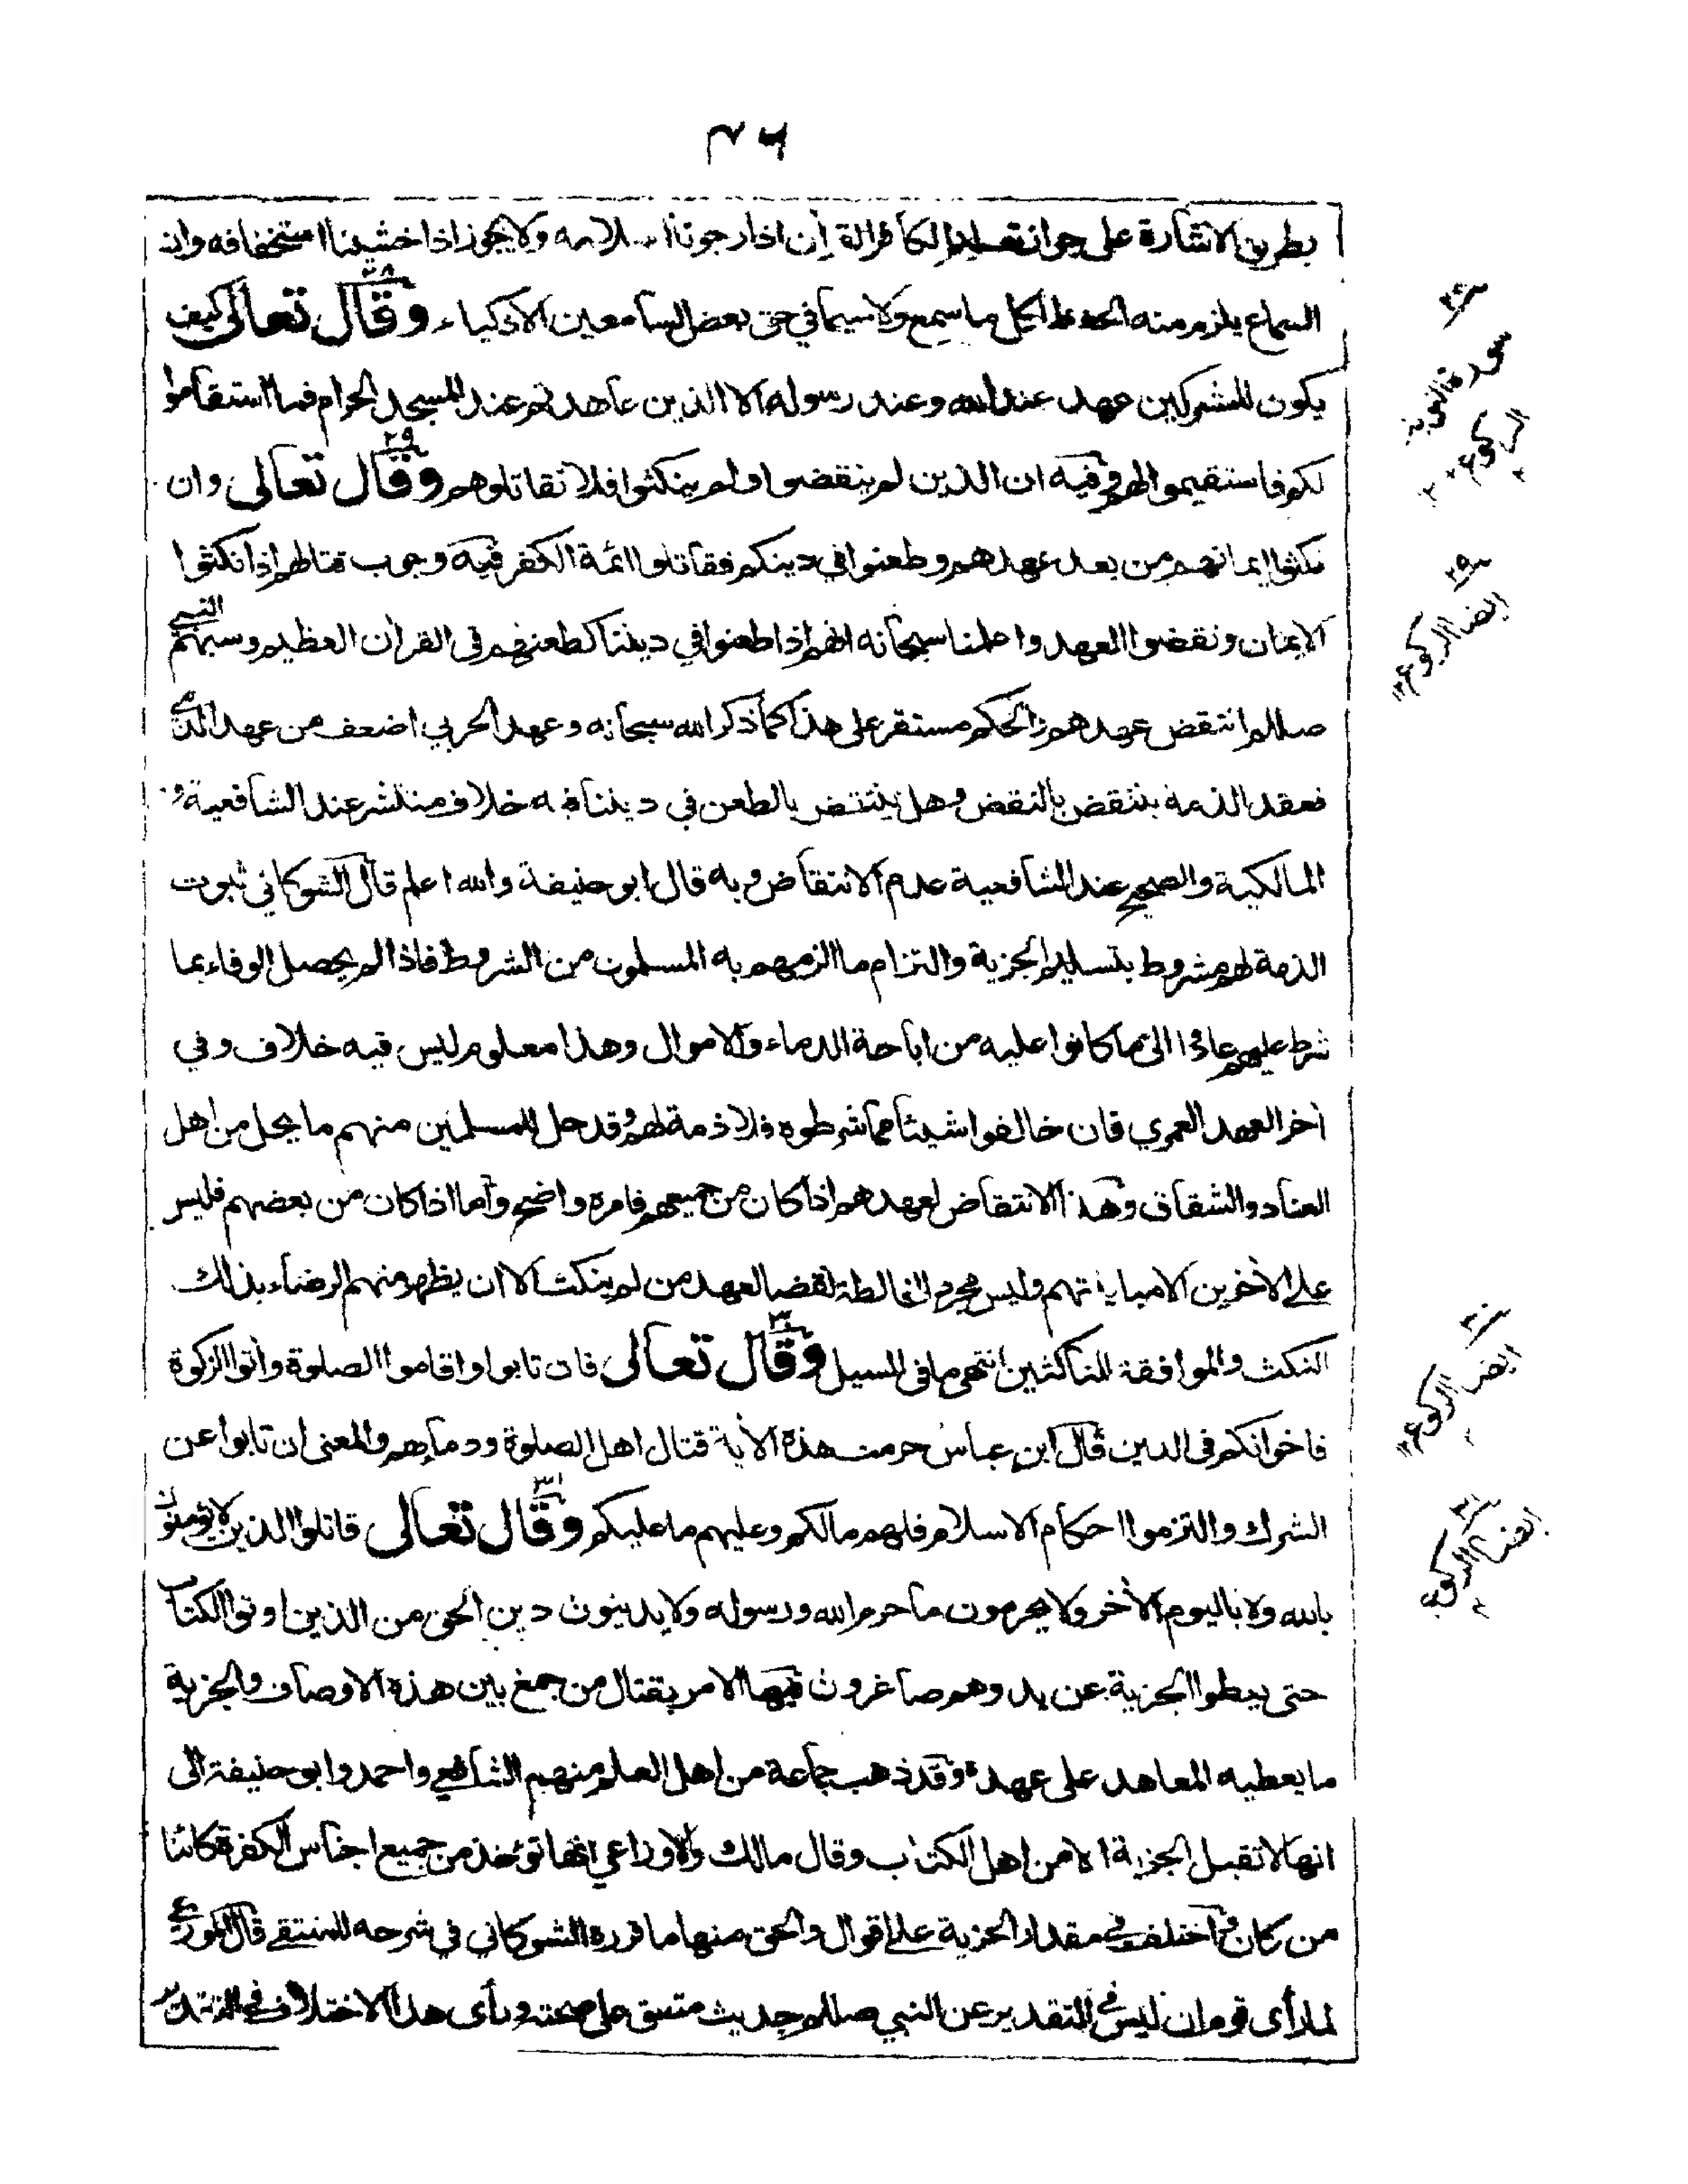 ٢٦
بطريق الاشارة على جواز تعليم الكافر القرآن اذا رجونا اسلامه ولا يجوز اذا خشينا استخفافه وان
السماع يلزم منه الحفظ لكل ما سمع ولا سيما في حق بعض السامعين الاذكياء وقال تعالى كيف
يكون للمشركين عهد عند الله وعند رسوله الا الذين عاهدتم عند المسجد الحرام فما استقاموا
لكم فاستقيموا لهم وفيه ان الذين لم ينقضوا ولم ينكثوا فلا تقاتلوهم وقال تعالى وان
نكثوا ايمانهم من بعد عهدهم وطعنوا في دينكم فقاتلوا ائمة الكفر فيه وجوب قتالهم اذا نكثوا
الايمان ونقضوا العهد واعلمنا سبحانه انهم اذا طعنوا في ديننا كطعنهم في القرآن العظيم وسبهم النبي
صللم انتقض عهدهم والحكم مستقر على هذا كما ذكر الله سبحانه وعهد الحربي اضعف من عهد الذمي
فعقد الذمة ينتقض بالنقض وهل ينتقض بالطعن في ديننا فيه خلاف منتشر عند الشافعية و
المالكية والصحيح عند الشافعية عدم الانتقاض وبه قال ابو حنيفة والله اعلم قال الشوكاني ثبوت
الذمة لهم مشروط بتسليم الجزية والتزام ما الزمهم به المسلمون من الشروط فاذا لم يحصل الوفاء بما
شرط عليهم عادوا الى ما كانوا عليه من اباحة الدماء والاموال وهذا معلوم ليس فيه خلاف وفي
اخر العهد العمري فان خالفوا شيئا مما شرطوه فلا ذمة لهم وقد حل للمسلمين منهم ما يحل من اهل
العناد والشقاق وهذا الانتقاض لعهدهم اذا كان من جميعهم فامره واضح واما اذا كان من بعضهم فليس
على الآخرين الا مباينتهم وليس مجرد المخالطة نقضا لعهد من لم ينكث الا ان يظهر منهم الرضاء بذلك
النكث والموافقة للناكثين انتهى ما في السيل وقال تعالى فان تابوا واقاموا الصلوة وآتوا الزكوة
فاخوانكم في الدين قال ابن عباس حرمت هذه الآية قتال اهل الصلوة ودماءهم والمعنى ان تابوا عن
الشرك والتزموا احكام الاسلام فلهم ما لكم وعليهم ما عليكم وقال تعالى قاتلوا الذين لا يؤمنون
بالله ولا باليوم الآخر ولا يحرمون ما حرم الله ورسوله ولا يدينون دين الحق من الذين اوتوا الكتاب
حتى يعطوا الجزية عن يد وهم صاغرون فيها الامر بقتال من جمع بين هذه الاوصاف والجزية
ما يعطيه المعاهد على عهده وقد ذهب جماعة من اهل العلم منهم الشافعي واحمد وابو حنيفة الى
انها لا تقبل الجزية الا من اهل الكتاب وقال مالك والاوزاعي انها تؤخذ من جميع اجناس الكفرة كائنا
من كان واختلف في مقدار الجزية على اقوال والحق منها ما قرره الشوكاني في شرحه للمنتقى قال
لما رأى قوم ان ليس في التقدير عن النبي صللم حديث متفق على صحته ورأى هذا الاختلاف في التقدير
٢٨
سورة التوبة
الركوع ٢
٢٩
ايضا الركوع
٣٠
ايضا الركوع
٣١
ايضا الركوع
٢٨
٢٩
٣٠
٣١